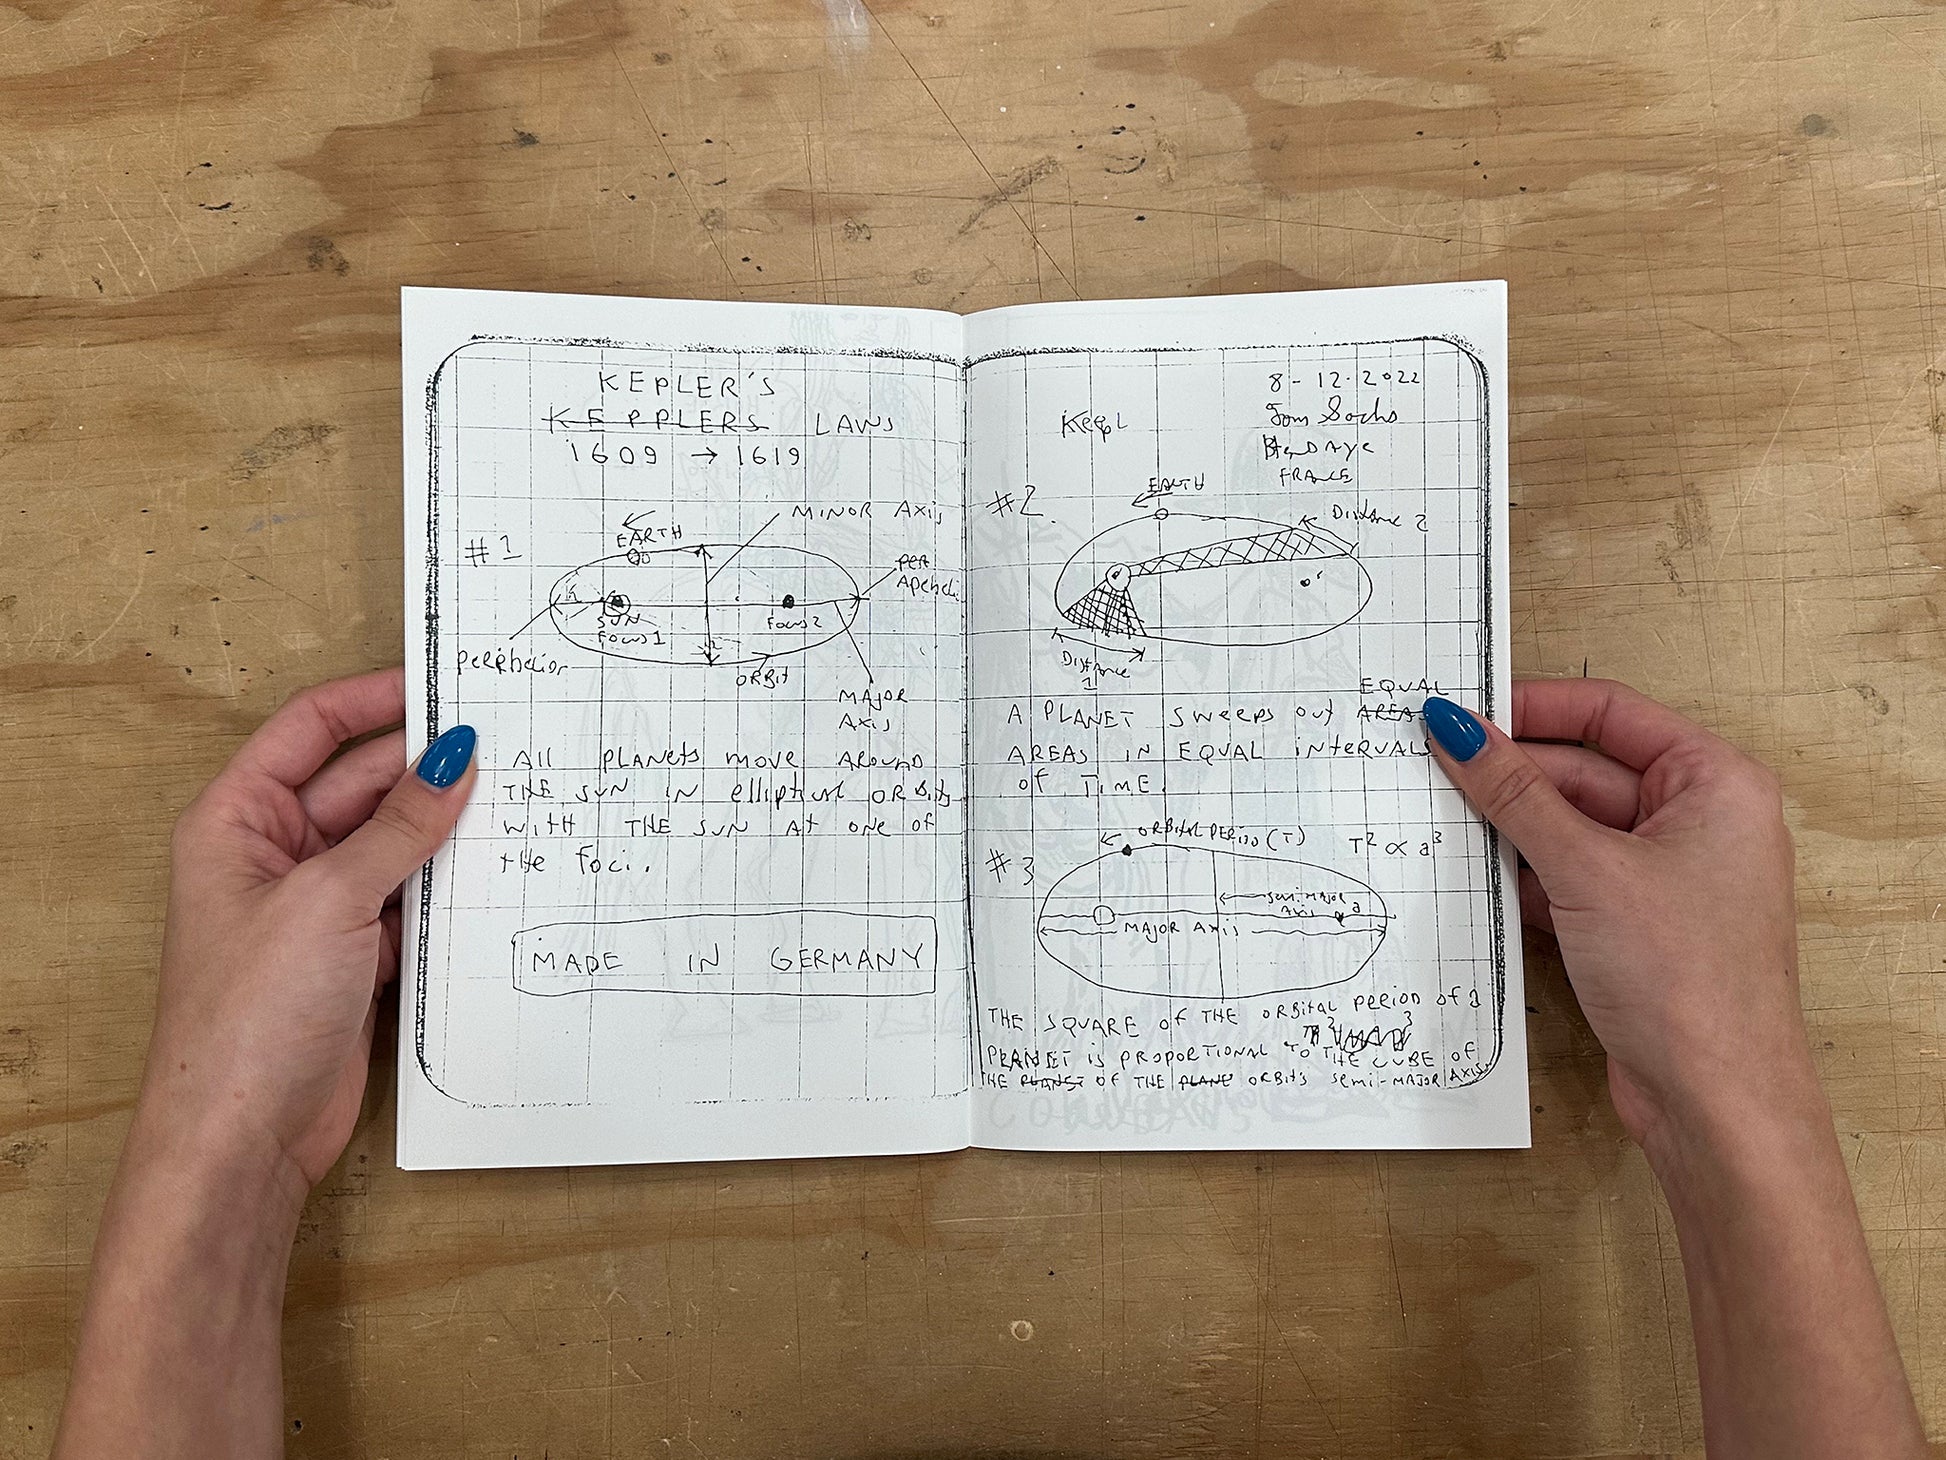 KEPLER'S
KEPPLERS LAWS
1609 → 1619
#1
MINOR AXIS
EARTH
SUN
Focus 1
Focus 2
ORBIT
MAJOR
AXIS
All PLANETS move AROUND
THE SUN IN elliptical ORBITS
WITH THE SUN AT ONE OF
THE Foci.
MADE IN GERMANY
8-12.2022
Tom Sachs
HENDAYE
FRANCE
Kepl
#2
EARTH
Distance 2
Distance
1
EQUAL
A PLANET SWEEPS OUT AREAS
AREAS IN EQUAL INTERVALS
OF TIME.
#3
ORBITAL PERIOD (T)
T² ∝ a³
SEMI MAJOR
AXIS a
MAJOR AXIS
THE SQUARE OF THE ORBITAL PERIOD OF A
PLANET IS PROPORTIONAL TO THE CUBE OF
THE PLANET OF THE PLANE ORBITS SEMI-MAJOR AXIS